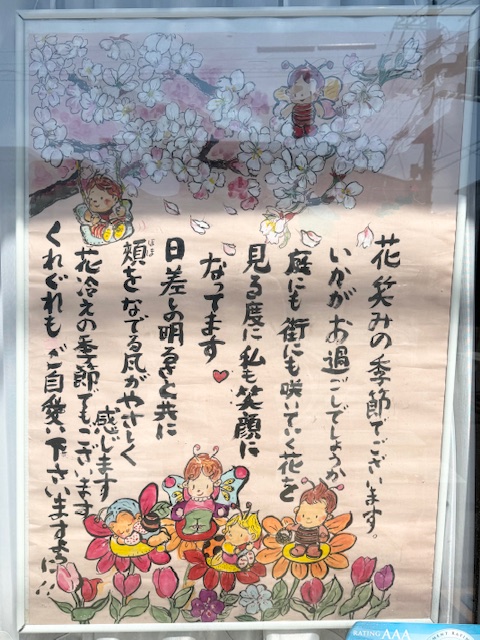 花笑みの季節でございます。
いかがお過ごしでしょうか
庭にも街にも咲いていく花を
見る度に私も笑顔に
なってます♥
日差しの明るさと共に
頬をなでる風がやさしく
ほほ
感じます
花冷えの季節でもございます
くれぐれもご自愛下さいますように!!
RATING AAA